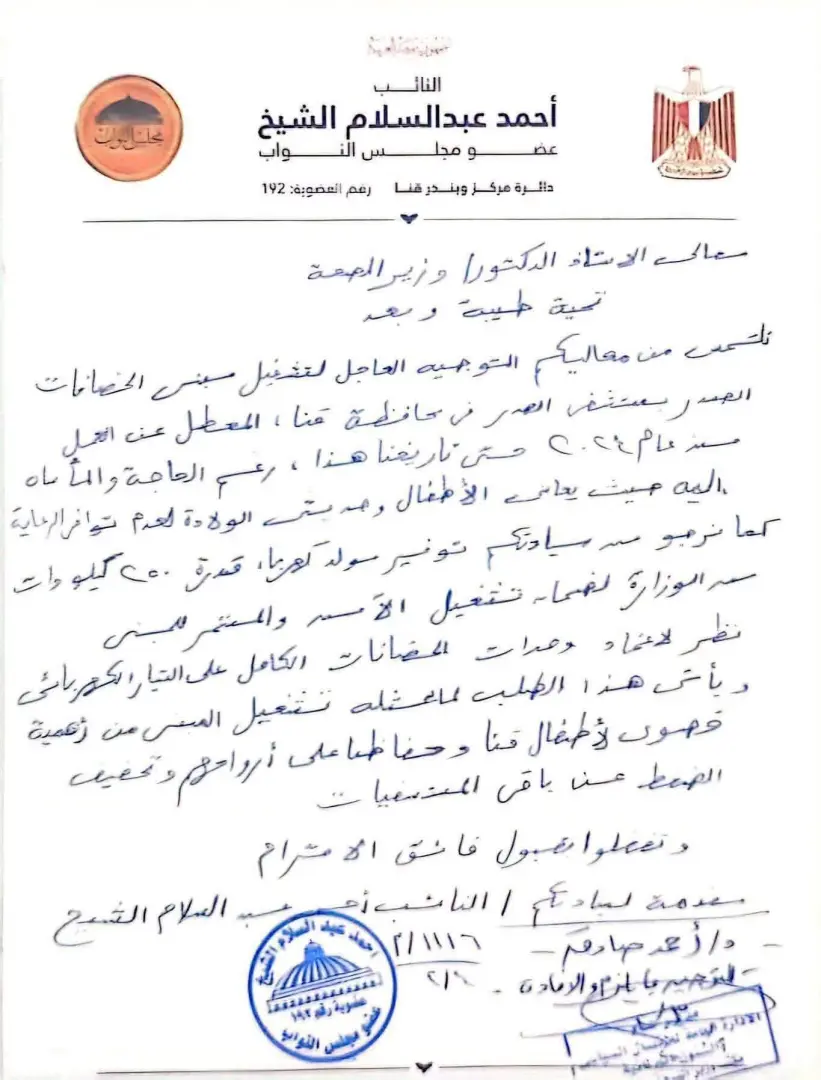 النائب
أحمد عبدالسلام الشيخ
عضو مجلس النواب
دائرة مركز وبندر قنا رقم العضوية: 192
مجلس النواب
معالى الاستاذ الدكتور/ وزير الصحة
تحية طيبة وبعد
نلتمس من معاليكم التوجيه العاجل لتشغيل مبنى الحضانات
بمستشفى الصدر فى محافظة قنا، المعطل عن العمل
منذ عام ٢٠٢٤ حتى تاريخنا هذا، رغم الحاجة والمأساه
اليه حيث يعانى الأطفال وحديثى الولادة لعدم توافر الرعاية
كما نرجو من سيادتكم توفير مولد كهرباء قدرة ٢٥٠ كيلو وات
من الوزارة لضمان تشغيل الآمن والمستمر للمبنى
نظر لاعتماد وحدات الحضانات الكامل على التيار الكهربائى
ويأتى هذا الطلب لما يمثله تشغيل المبنى من أهمية
قصوى لأطفال قنا وحفاظا على أرواحهم وتخفيف
الضغط عن باقى المستشفيات
وتفضلوا بقبول فائق الاحترام
مقدمة لسيادتكم / النائب أحمد عبد السلام الشيخ
د/ أحمد صادق
التوجيه بما يلزم والافادة
احمد عبد السلام الشيخ
عضوية رقم ١٩٢
عضو مجلس النواب
الادارة العامة للاتصال السياسى